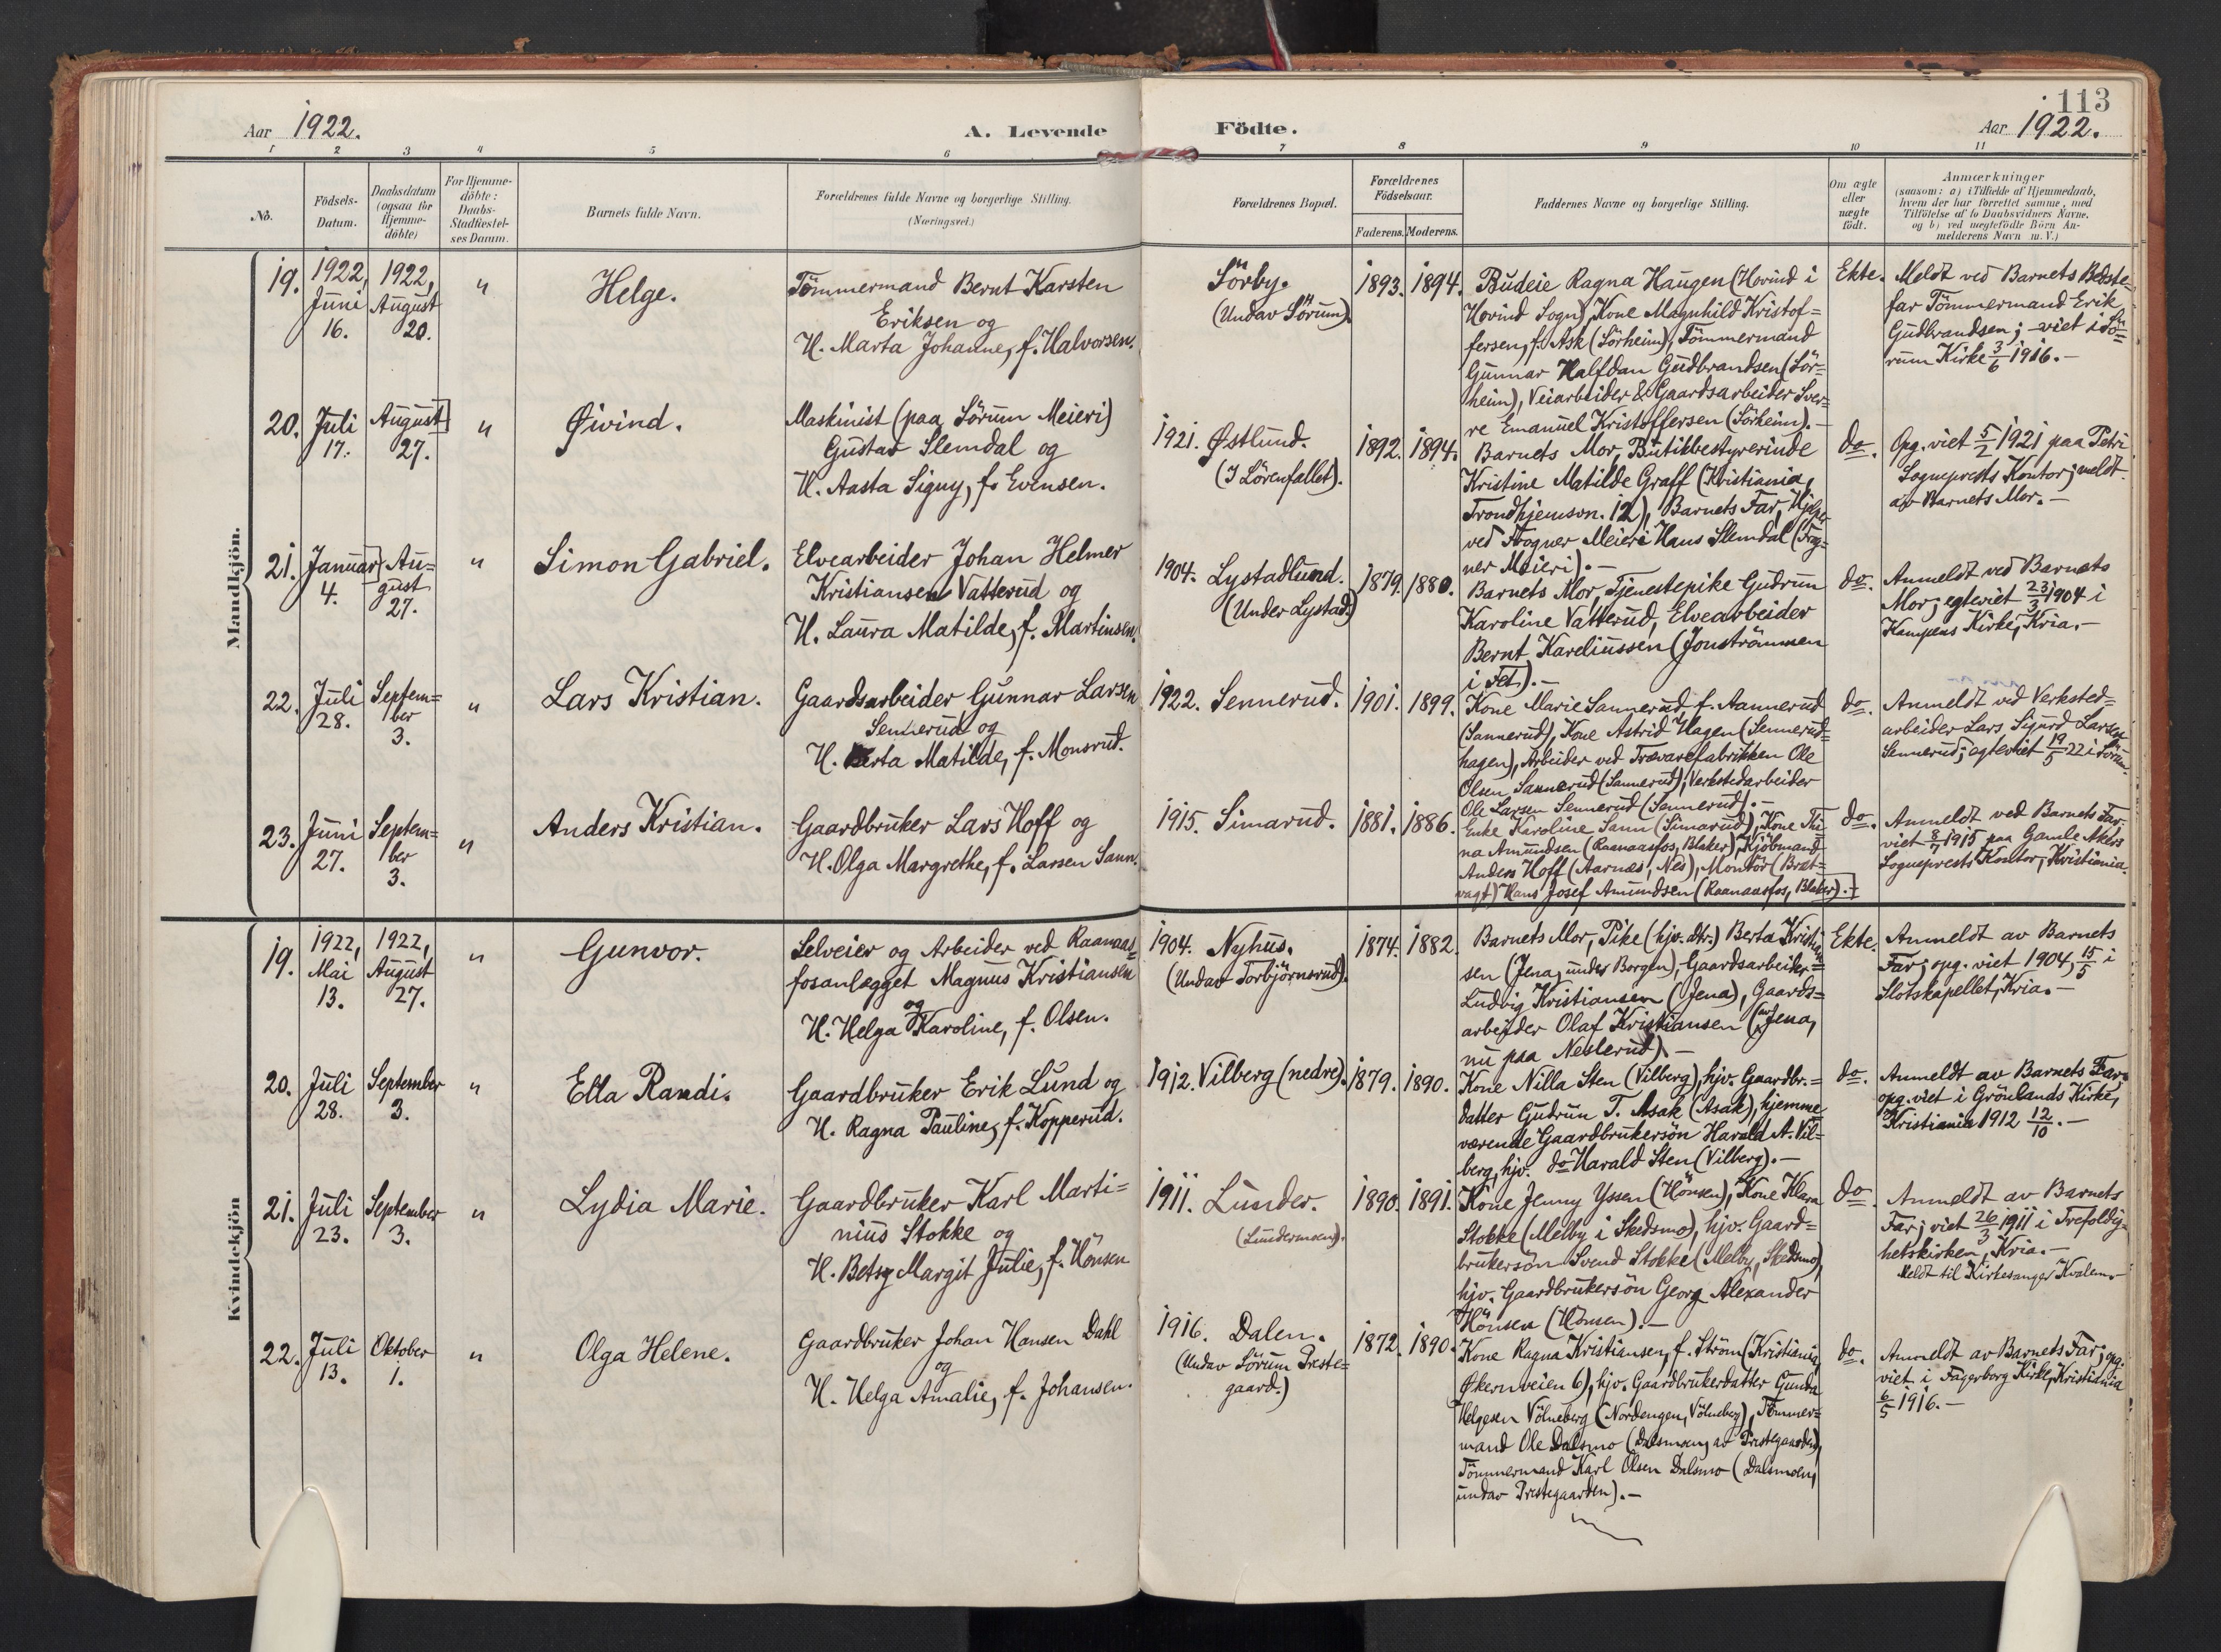 113
Aar 1922.
A. Levende Födte.
Aar 1922.
1 2 3 4 5 6 7 8 9 10 11
No.
Födsels-Datum.
Daabsdatum (ogsaa for Hjemme-döbte)
For Hjemme-döbte: Daabs-Stadfæstel-ses Datum.
Barnets fulde Navn.
Forældrenes fulde Navne og borgerlige Stilling.
(Næringsvei.)
Forældrenes Bopæl.
Forældrenes Födselsaar.
Faderens. Moderens.
Faddernes Navne og borgerlige Stilling.
Om ægte eller uægte födt.
Anmærkninger
(saasom: a) i Tilfælde af Hjemmedaab,
hvem der har forrettet samme, med
Tilföielse af to Daabsvidners Navne,
og b) ved uægtefödte Börn An-
melderens Navn m. V.)
Mandkjön.
19.
1922,
Juni
16.
1922,
August
20.
"
Helge.
Tömmermand Bernt Karsten
Eriksen og
H. Marta Johanne, f. Halvorsen.
Sörby.
(Undav Sörum).
1893. 1894.
Budeie Ragna Haugen (Hovind i
Hovind Sogn), Kone Magnhild Kristof=
fersen, f. Ask (Sörheim), Tömmermand
Gunnar Halfdan Gudbrandsen (Sör=
heim), Veiarbeider & Gaardsarbeider Sver=
re Emanuel Kristoffersen (Sörheim).-
Ekte.
Meldt ved Barnets Bedste=
far Tömmermand Erik
Gudbrandsen; viet i Sö=
rum Kirke 3/6 1916.-
20.
Juli
17.
August
27.
"
Øivind.
Maskinist (paa Sörum Meieri)
Gustav Slemdal og
H. Aasta Signy, f. Evensen.
1921. Østlund.
(I Lörenfallet).
1892. 1894.
Barnets Mor, Butikbestyrerinde
Kristine Matilde Graff (Kristiania,
Trondhjemsvn. 12), Barnets Far, Hjelper
ved Frogner Meieri Hans Slemdal (Frog=
ner Meieri).-
do.
Opg. viet 5/2 1921 paa Petri
Sogneprests Kontor; meldt
av Barnets Mor.-
21.
Januar
4.
Au=
gust
27.
"
Simon Gabriel.
Elvearbeider Johan Helmer
Kristiansen Vatterud og
H. Laura Matilde, f. Martinsen.
1904. Lystadlund.
(Under Lystad.)
1879. 1880.
Barnets Mor, Tjenestepike Gudrun
Karoline Vatterud, Elvearbeider
Bernt Kareliussen (Jonströmmen
i Fet).-
do.
Anmeldt ved Barnets
Mor; egteviet 23/3 1904 i
Kampens Kirke, Kria.-
22.
Juli
28.
Septem=
ber
3.
"
Lars Kristian.
Gaardsarbeider Gunnar Larsen
Sennerud og
H. Berta Matilde, f. Monsrud.
1922. Sennerud.
1901. 1899.
Kone Marie Sannerud, f. Aannerud
(Sannerud), Kone Astrid Hagen (Sennerud=
hagen), Arbeider ved Trævarefabrikken Ole
Olsen Sannerud (Sannerud), Verkstedarbeider
Ole Larsen Sennerud (Sennerud).-
do.
Anmeldt ved Verksted=
arbeider Lars Sigurd Larsen
Sennerud; egteviet 19/5 22 i Sörum.
23.
Juni
27.
Septem=
ber
3.
"
Anders Kristian.
Gaardbruker Lars Hoff og
H. Olga Margrethe, f. Larsen Sann.
1915. Simarud.
1881. 1886.
Enke Karoline Sann (Simarud), Kone Thi=
na Amundsen (Raanaasfos, Blaker), Kjöbmand
Anders Hoff (Aarnæs, Nes), Montör (Brat=
vagt) Hans Josef Amundsen (Raanaasfos, Blaker).-
do.
Anmeldt ved Barnets Far.
viet 8/7 1915 paa Gamle Akers
Sogneprests Kontor, Kristiania.
Kvindekjön
19.
1922,
Mai
13.
1922,
August
27.
"
Gunvor.
Selveier og Arbeider ved Raanaas=
fosanlægget Magnus Kristiansen
og
H. Helga Karoline, f. Olsen.
1904. Nyhus.
(Undav Torbjörnsrud).
1874. 1882.
Barnets Mor, Pike (hjv. dtr.) Berta Kristian
sen (Jena, under Borgen), Gaardsarbeider=
Ludvig Kristiansen (Jena), Gaards=
arbeider Olaf Kristiansen (av Jena,
nu paa Neslerud).-
Ekte.
Anmeldt av Barnets
Far; opg. viet 1904, 15/5 i
Slotskapellet, Kria.-
20.
Juli
28.
September
3.
"
Ella Randi.
Gaardbruker Erik Lund og
H. Ragna Pauline, f. Kopperud.
1912. Vilberg (nedre).
1879. 1890.
Kone Nilla Sten (Vilberg), hjv. Gaardbr.=
datter Gudrun T. Asak (Asak), hjemme
værende Gaardbrukersön Harald A. Vil=
berg, hjv. do Harald Sten (Vilberg).-
do.
Anmeldt av Barnets Far,
opg. viet i Grönlands Kirke,
Kristiania 1912 12/10.-
21.
Juli
23.
September
3.
"
Lydia Marie.
Gaardbruker Karl Marti=
nius Stokke og
H. Betsy Margit Julie, f. Hönsen
1911. Lunder.
(Lundermoen).
1890. 1891.
Kone Jenny Yssen (Hönsen), Kone Klara
Stokke (Melby i Skedsmo), hjv. Gaard=
brukersön Svend Stokke (Melby, Skedsmo),
hjv. Gaardbrukersön Georg Alexander
Hönsen (Hönsen).-
do.
Anmeldt av Barnets
Far; viet 26/3 1911 i Trefoldig=
hetskirken, Kria.-
Meldt til Kirkesanger Kvalem.-
22.
Juli
13.
Oktober
1.
"
Olga Helene.
Gaardbruker Johan Hansen Dahl
og
H. Helga Amalie, f. Johansen.
1916. Dalen.
(Undav Sörum Preste=
gaard.)
1872. 1890.
Kone Ragna Kristiansen, f. Ström (Kristiania,
Økernveien 6), hjv. Gaardbrukerdatter Gunda
Helgesen Völneberg (Nordengen, Völneberg), Tömmer=
mand Ole Dalsmo (Dalsmoen, av Prestegaarden),
Tömmermand Karl Olsen Dalsmo (Dalsmoen,
undav Prestegaarden).-
do.
Anmeldt av Barnets Far; opg.
viet i Fagerborg Kirke, Kristiania
6/5 1916.-